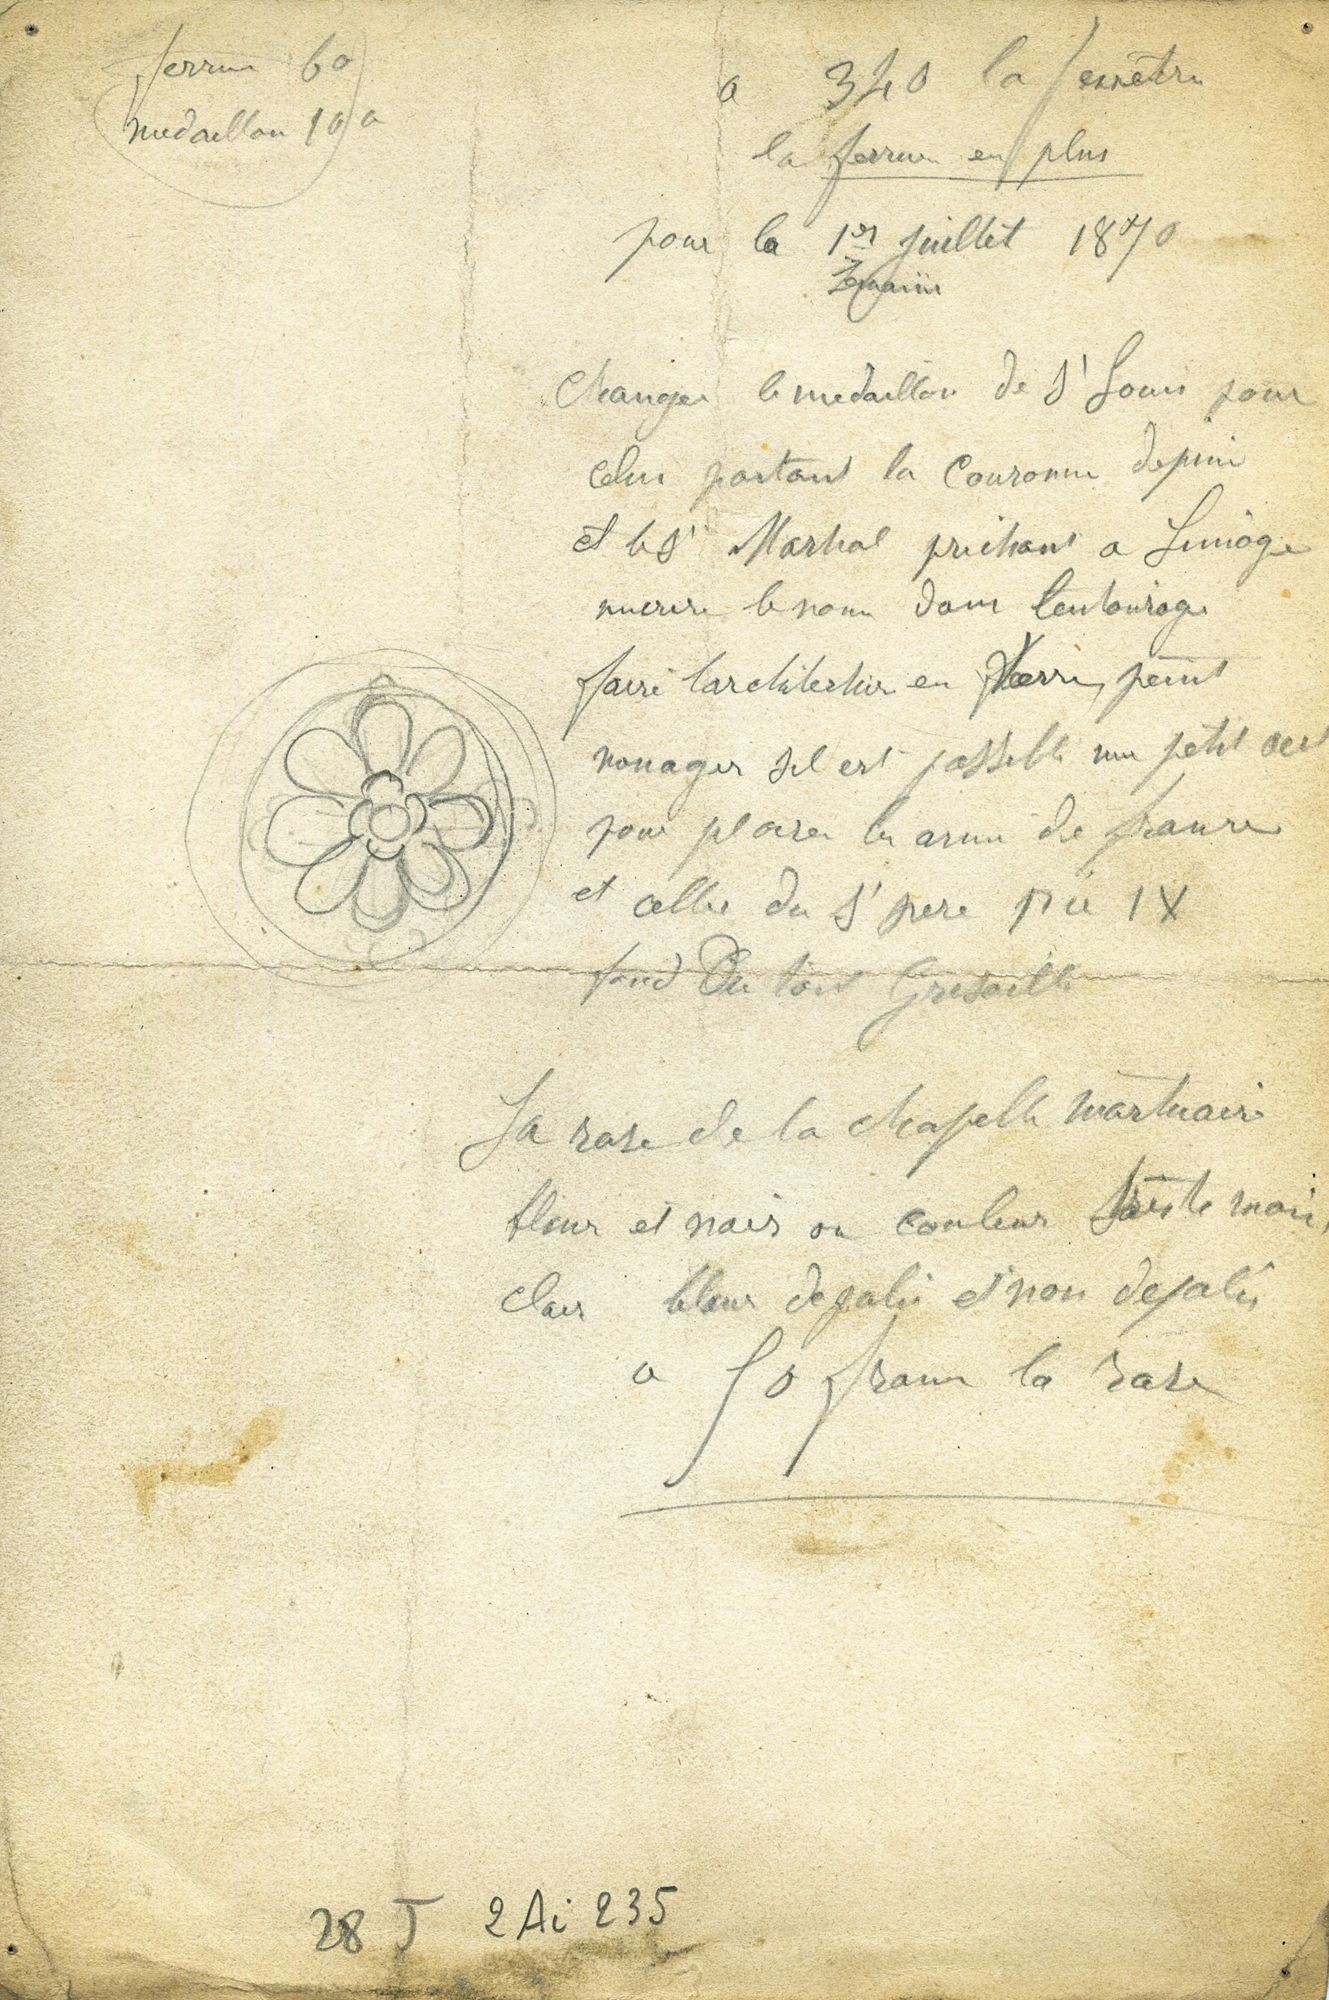 ferrure 60
medaillon 100
a 340 la fennêtre
la ferrure en plus
pour la 1er juillet 1870
Semaine
Changer le medaillon de St Louis pour
celui portant la Couronne depine
et le St Martial prechant a Limoge
le nom dans lentourage
faire larchitecture en Verre peint
menager sil est possible un petit
pour placer les arme de france
et celles du St pere Pie IX
fond Du tout Grisaille
La rose de la chapelle mortuaire
bleue et noir ou couleur triste mais
clair bleue depolie et non depolie
a 50 franc la rose
28 J 2Ai 235